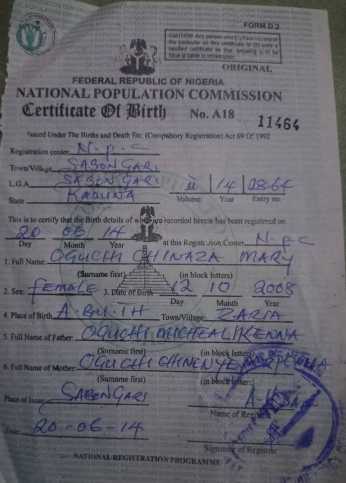 FORM D.2
ORIGINAL
FEDERAL REPUBLIC OF NIGERIA
NATIONAL POPULATION COMMISSION
Certificate Of Birth No. A18 11464
Issued Under The Births and Death Etc. (Compulsory Registration) Act 69 Of 1992
Registration center N.p.c
Town/Village SABON GARI
L.G.A SABON GARI II 14 0864
State KADUNA Volume Year Entry no.
This is to certify that the Birth details of which are recorded herein has been registered on
20 06 14 at this Registration Center N.p.c
Day Month Year
1. Full Name OGUCHI CHINAZA MARY
(Surname first) (in block letters)
2. Sex: female 3. Date of Birth 12 10 2008
Day Month Year
4. Place of Birth A.B.U.T.H Town/Village: ZARIA
5. Full Name of Father: OGUCHI MICHEAL IKENNA
(Surname first) (in block letters)
6. Full Name of Mother: OGUCHI CHINENYE
(Surname first) (in block letters)
Place of Issue SABON GARI
Name of Registrar
Date 20-06-14
Signature of Registrar
NATIONAL REGISTRATION PROGRAMME